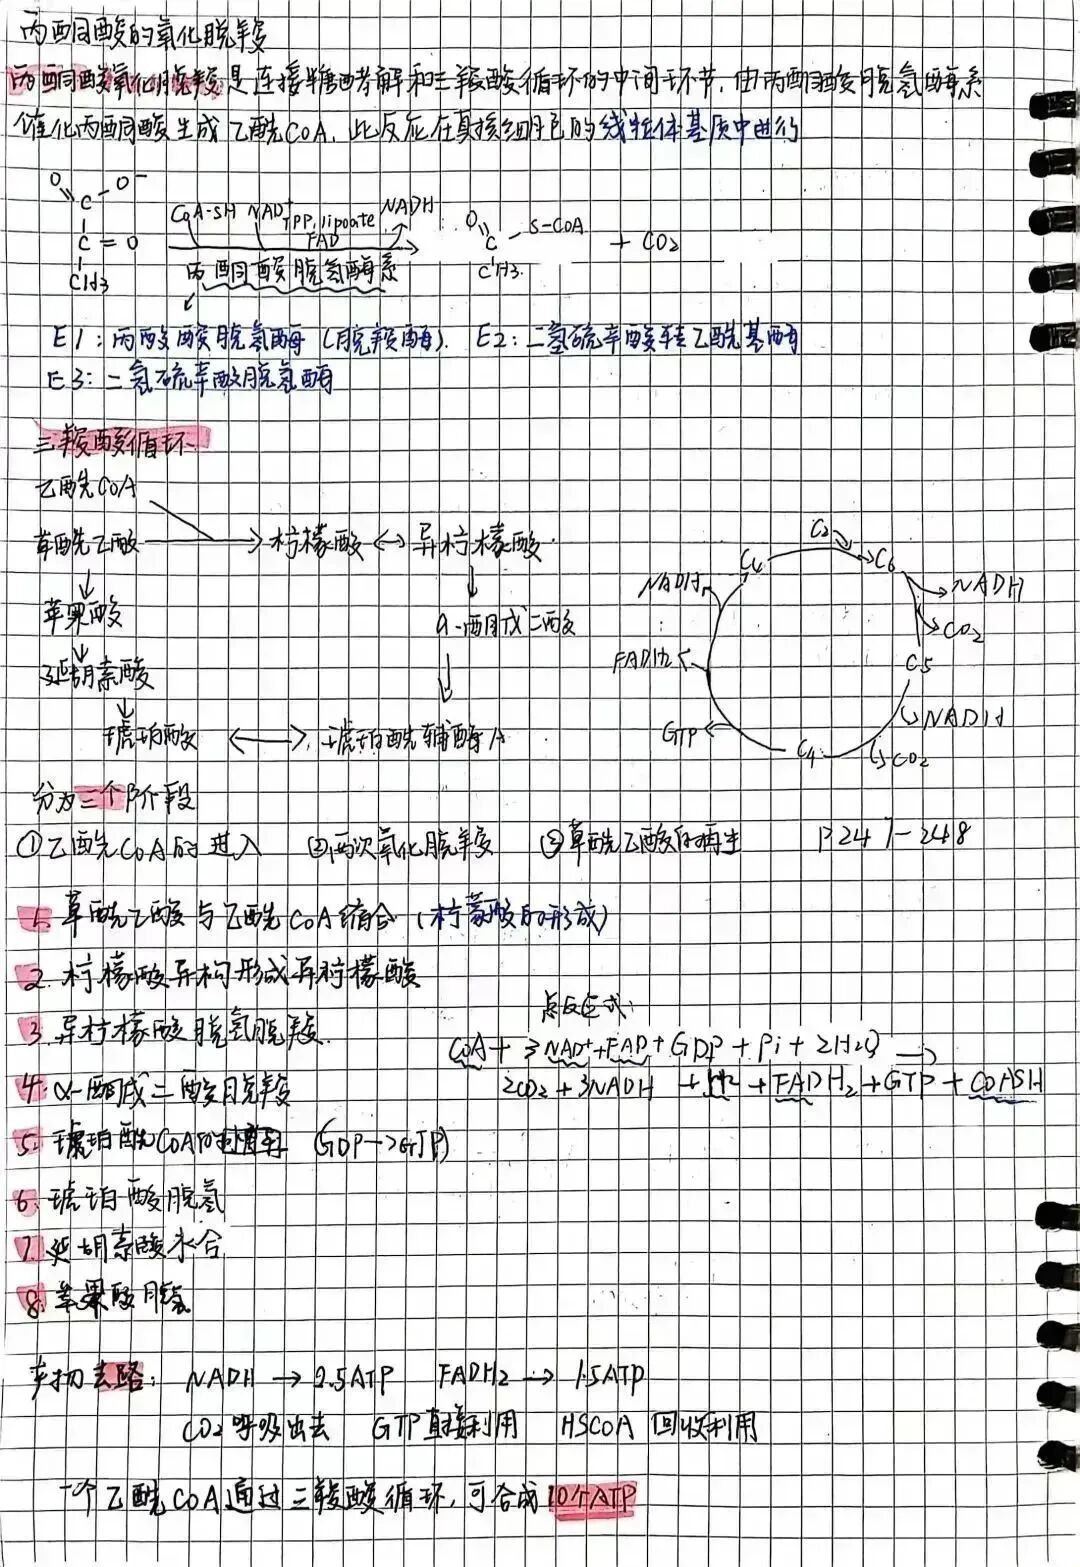 丙酮酸的氧化脱羧
丙酮酸氧化脱羧是连接糖酵解和三羧酸循环的中间环节,由丙酮酸脱氢酶系
催化丙酮酸生成乙酰COA,此反应在真核细胞的线粒体基质中进行
O C O⁻
C=O
CH3
COA-SH NAD⁺ TPP,lipoate FAD NADH
丙酮酸脱氢酶系
O C S-COA
CH3
+ CO2
E1:丙酸脱氢酶(脱羧酶). E2:二氢硫辛酸转乙酰基酶
E3:二氢硫辛酸脱氢酶
三羧酸循环
乙酰COA
草酰乙酸 → 柠檬酸 ↔ 异柠檬酸
苹果酸
α-酮戊二酸
延胡索酸
琥珀酸 ↔ 琥珀酰辅酶A
C2
C4 C6
NADH NADH
CO2
FADH2 C5
NADH
GTP C4 CO2
分为三个阶段
①乙酰COA的进入 ②两次氧化脱羧 ③草酰乙酸的再生 P247-248
1. 草酰乙酸与乙酰COA缩合(柠檬酸的形成)
2. 柠檬酸异构形成异柠檬酸
3. 异柠檬酸脱氢脱羧.
总反应式:
COA+3NAD⁺+FAD+GDP+Pi+2H2O →
4. α-酮戊二酸脱羧
2CO2+3NADH + +FADH2+GTP+COASH
5. 琥珀酰COA (GDP→GTP)
6. 琥珀酸脱氢
7. 延胡索酸水合
8. 苹果酸脱氢
产物去路: NADH → 2.5ATP FADH2 → 1.5ATP
CO2呼吸出去 GTP直接利用 HSCOA 回收利用
一个乙酰COA通过三羧酸循环,可合成10个ATP